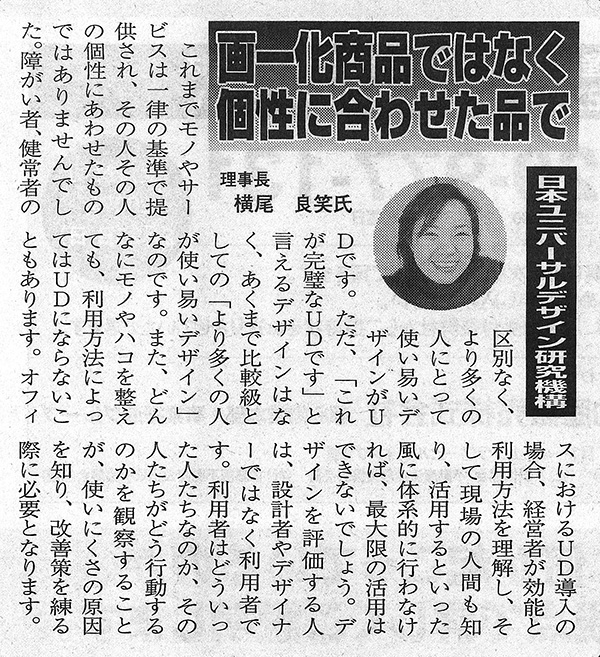 画一化商品ではなく
個性に合わせた品で
日本ユニバーサルデザイン研究機構
理事長
横尾 良笑氏
これまでモノやサー
ビスは一律の基準で提
供され、その人その人
の個性にあわせたもの
ではありませんでし
た。障がい者、健常者の
区別なく、
より多くの
人にとって
使い易いデ
ザインがU
Dです。ただ、「これ
が完璧なUDです」と
言えるデザインはな
く、あくまで比較級と
しての「より多くの人
が使い易いデザイン」
なのです。また、どん
なにモノやハコを整え
ても、利用方法によっ
てはUDにならないこ
ともあります。オフィ
スにおけるUD導入の
場合、経営者が効能と
利用方法を理解し、そ
して現場の人間も知
り、活用するといった
風に体系的に行わなけ
れば、最大限の活用は
できないでしょう。デ
ザインを評価する人
は、設計者やデザイナ
ーではなく利用者で
す。利用者はどういっ
た人たちなのか、その
人たちがどう行動する
のかを観察すること
が、使いにくさの原因
を知り、改善策を練る
際に必要となります。